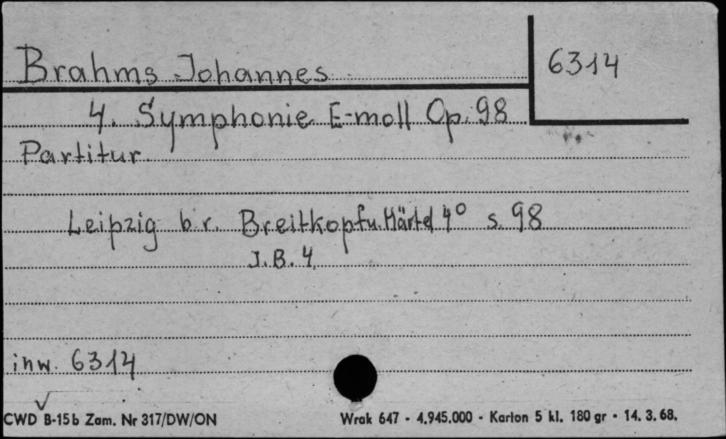 Brahms Johannes
6314
4. Symphonie E-moll Op. 98
Partitur
Leipzig b.r. Breitkopf u. Härtel 4° s. 98
J.B. 4
inw. 6314
CWD B-15b Zam. Nr 317/DW/ON
Wrak 647 - 4.945.000 - Karton 5 kl. 180 gr - 14.3.68.